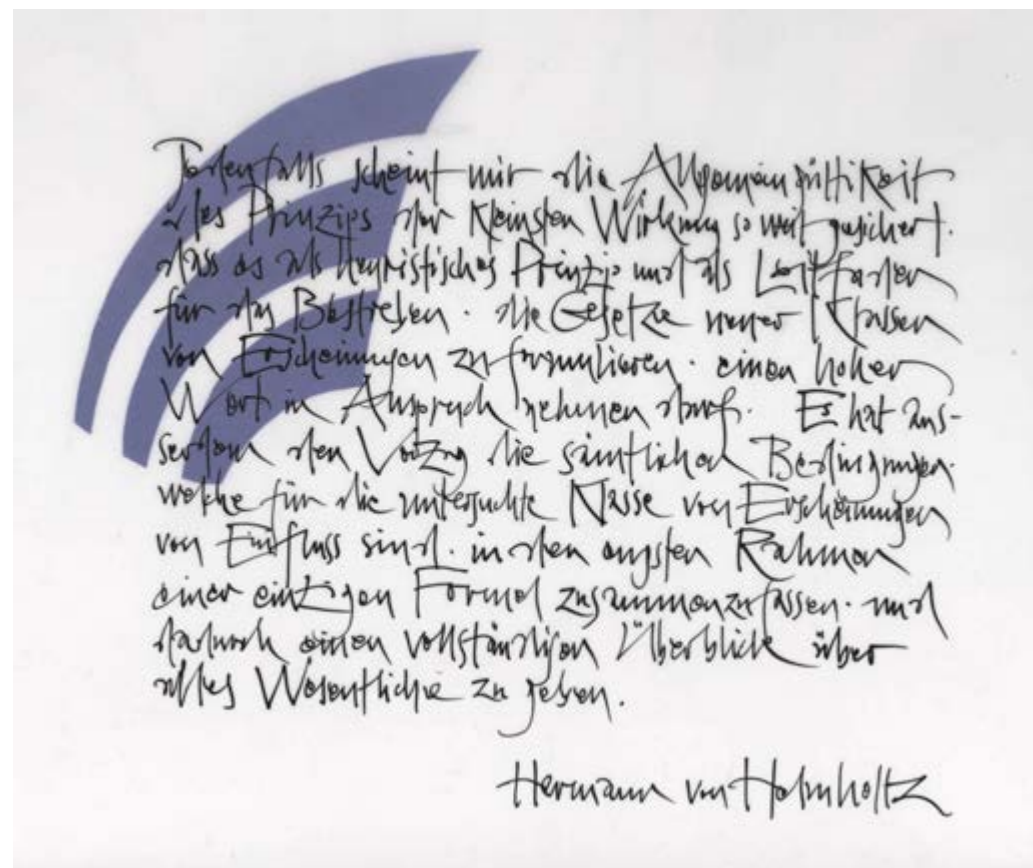 Jedenfalls scheint mir die Allgemeingültigkeit
des Prinzips der kleinsten Wirkung so weit gesichert.
dass es als heuristisches Prinzip und als Leitfaden
für das Bestreben. die Gesetze neuer Klassen
von Erscheinungen zu formulieren. einen hohen
Wert in Anspruch nehmen darf. Es hat aus-
serdem den Vorzug die sämtlichen Bedingungen.
welche für die untersuchte Klasse von Erscheinungen
von Einfluss sind. in den engsten Rahmen
einer einzigen Formel zusammenzufassen. und
dadurch einen vollständigen Überblick über
alles Wesentliche zu geben.
Hermann von Helmholtz